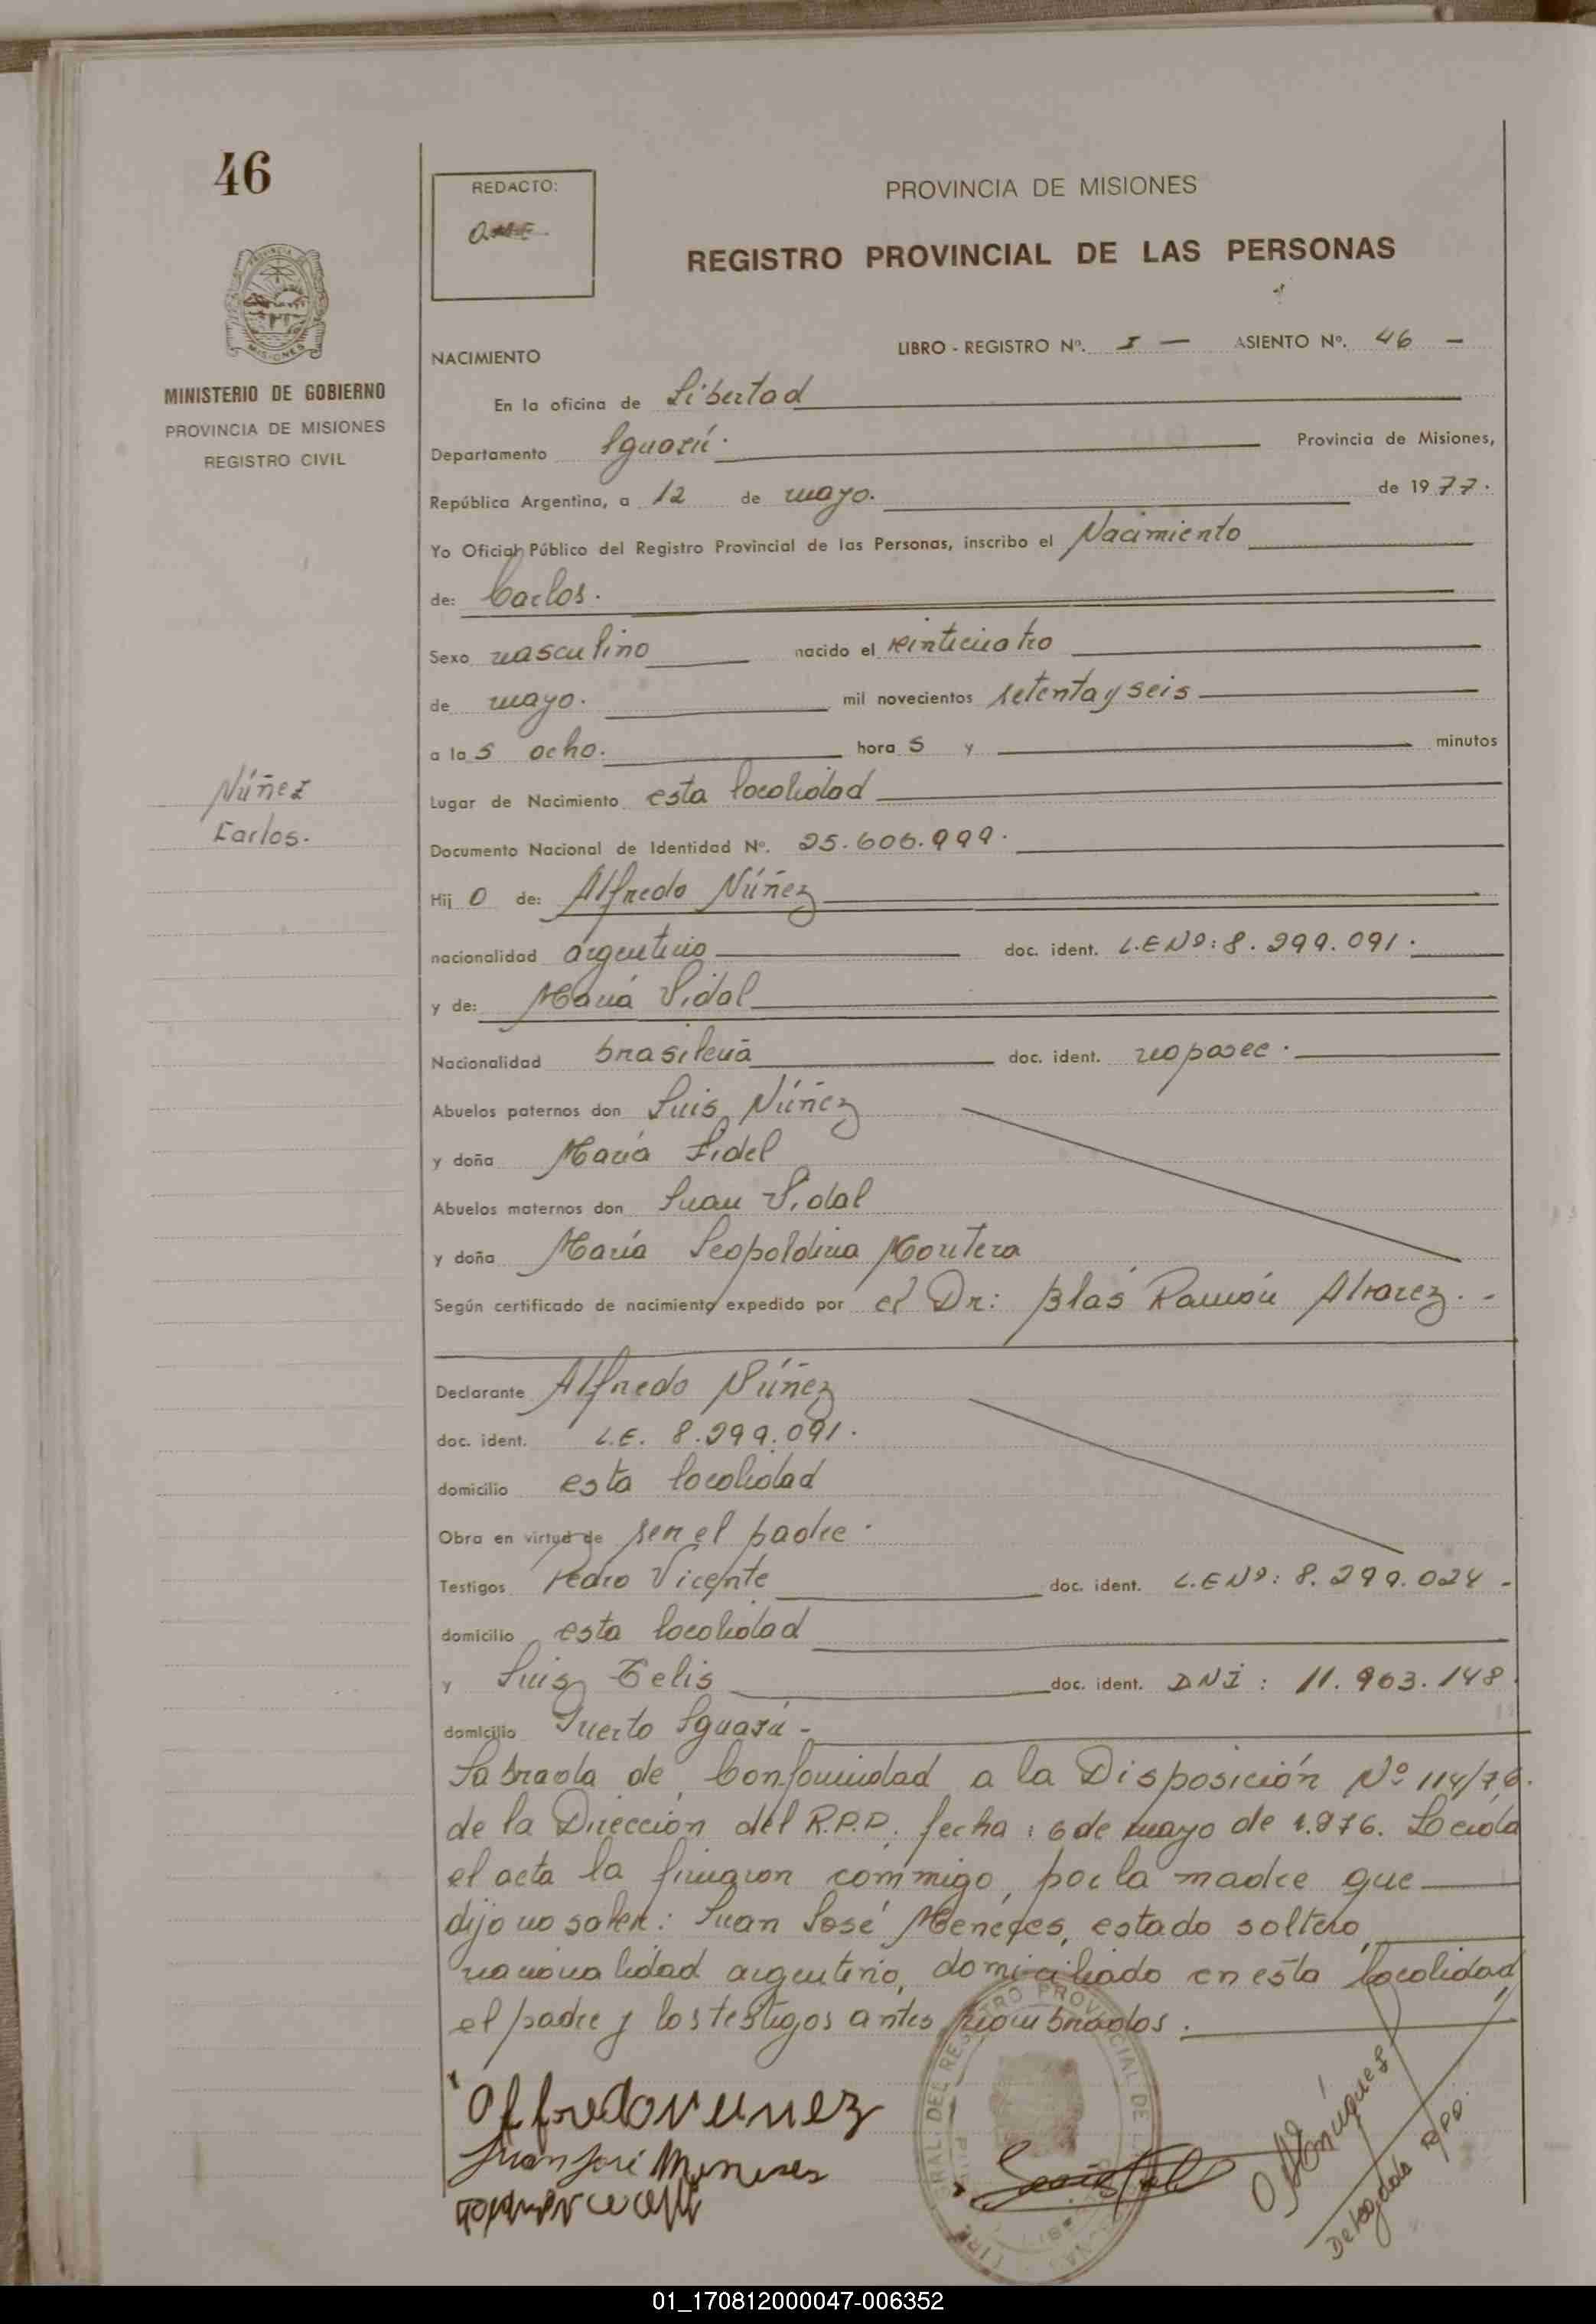 46
REDACTO:
PROVINCIA DE MISIONES
REGISTRO PROVINCIAL DE LAS PERSONAS
MISIONES
MINISTERIO DE GOBIERNO
PROVINCIA DE MISIONES
REGISTRO CIVIL
NACIMIENTO
LIBRO - REGISTRO Nº. I — ASIENTO Nº. 46 —
En la oficina de Libertad
Departamento Iguazú. Provincia de Misiones,
República Argentina, a 12 de mayo. de 1977.
Yo Oficial Público del Registro Provincial de las Personas, inscribo el Nacimiento
de: Carlos.
Sexo masculino nacido el veinticuatro
de mayo. mil novecientos setenta y seis
a las ocho. horas y minutos
Núñez
Carlos.
Lugar de Nacimiento esta localidad
Documento Nacional de Identidad Nº. 25.606.999.
Hijo de: Alfredo Núñez
nacionalidad argentino doc. ident. L.E Nº: 8.299.091.
y de: María Vidal
Nacionalidad brasileña doc. ident. no posee.
Abuelos paternos don Luis Núñez
y doña María Fidel
Abuelos maternos don Juan Vidal
y doña María Leopoldina Montera
Según certificado de nacimiento expedido por el Dr: Blás Ramón Alvarez. -
Declarante Alfredo Núñez
doc. ident. L.E. 8.299.091.
domicilio esta localidad
Obra en virtud de ser el padre.
Testigos Pedro Vicente doc. ident. L.E Nº: 8.299.024 -
domicilio esta localidad
y Luis Telis doc. ident. DNI: 11.963.148
domicilio Puerto Iguazú -
Labrada de Conformidad a la Disposición Nº 114/76.
de la Dirección del R.P.P. fecha: 6 de mayo de 1.976. Leída
el acta la firmaron conmigo, por la madre que
dijo no saber: Juan José Meneses, estado soltero,
nacionalidad argentino, domiciliado en esta localidad
el padre y los testigos antes nombrados.
Alfredo nunez
Juan José Meneses
Delegada R.P.P.
01_170812000047-006352